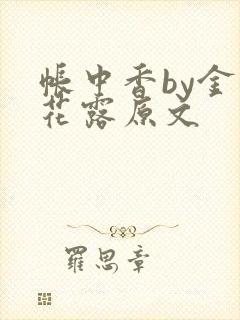 帳中香by金
花露原文
羅思章